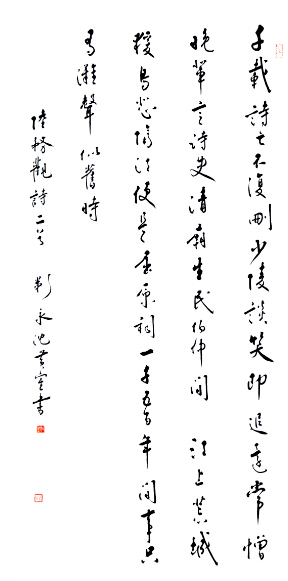 千載詩亡不復刪少陵談笑即追還常憎
晚輩言詩史清廟生民伯仲間 江上荒城
猨鳥悲隔江便是屈原祠一千五百年間事只
有灘聲似舊時
陸務觀詩二首 永 書